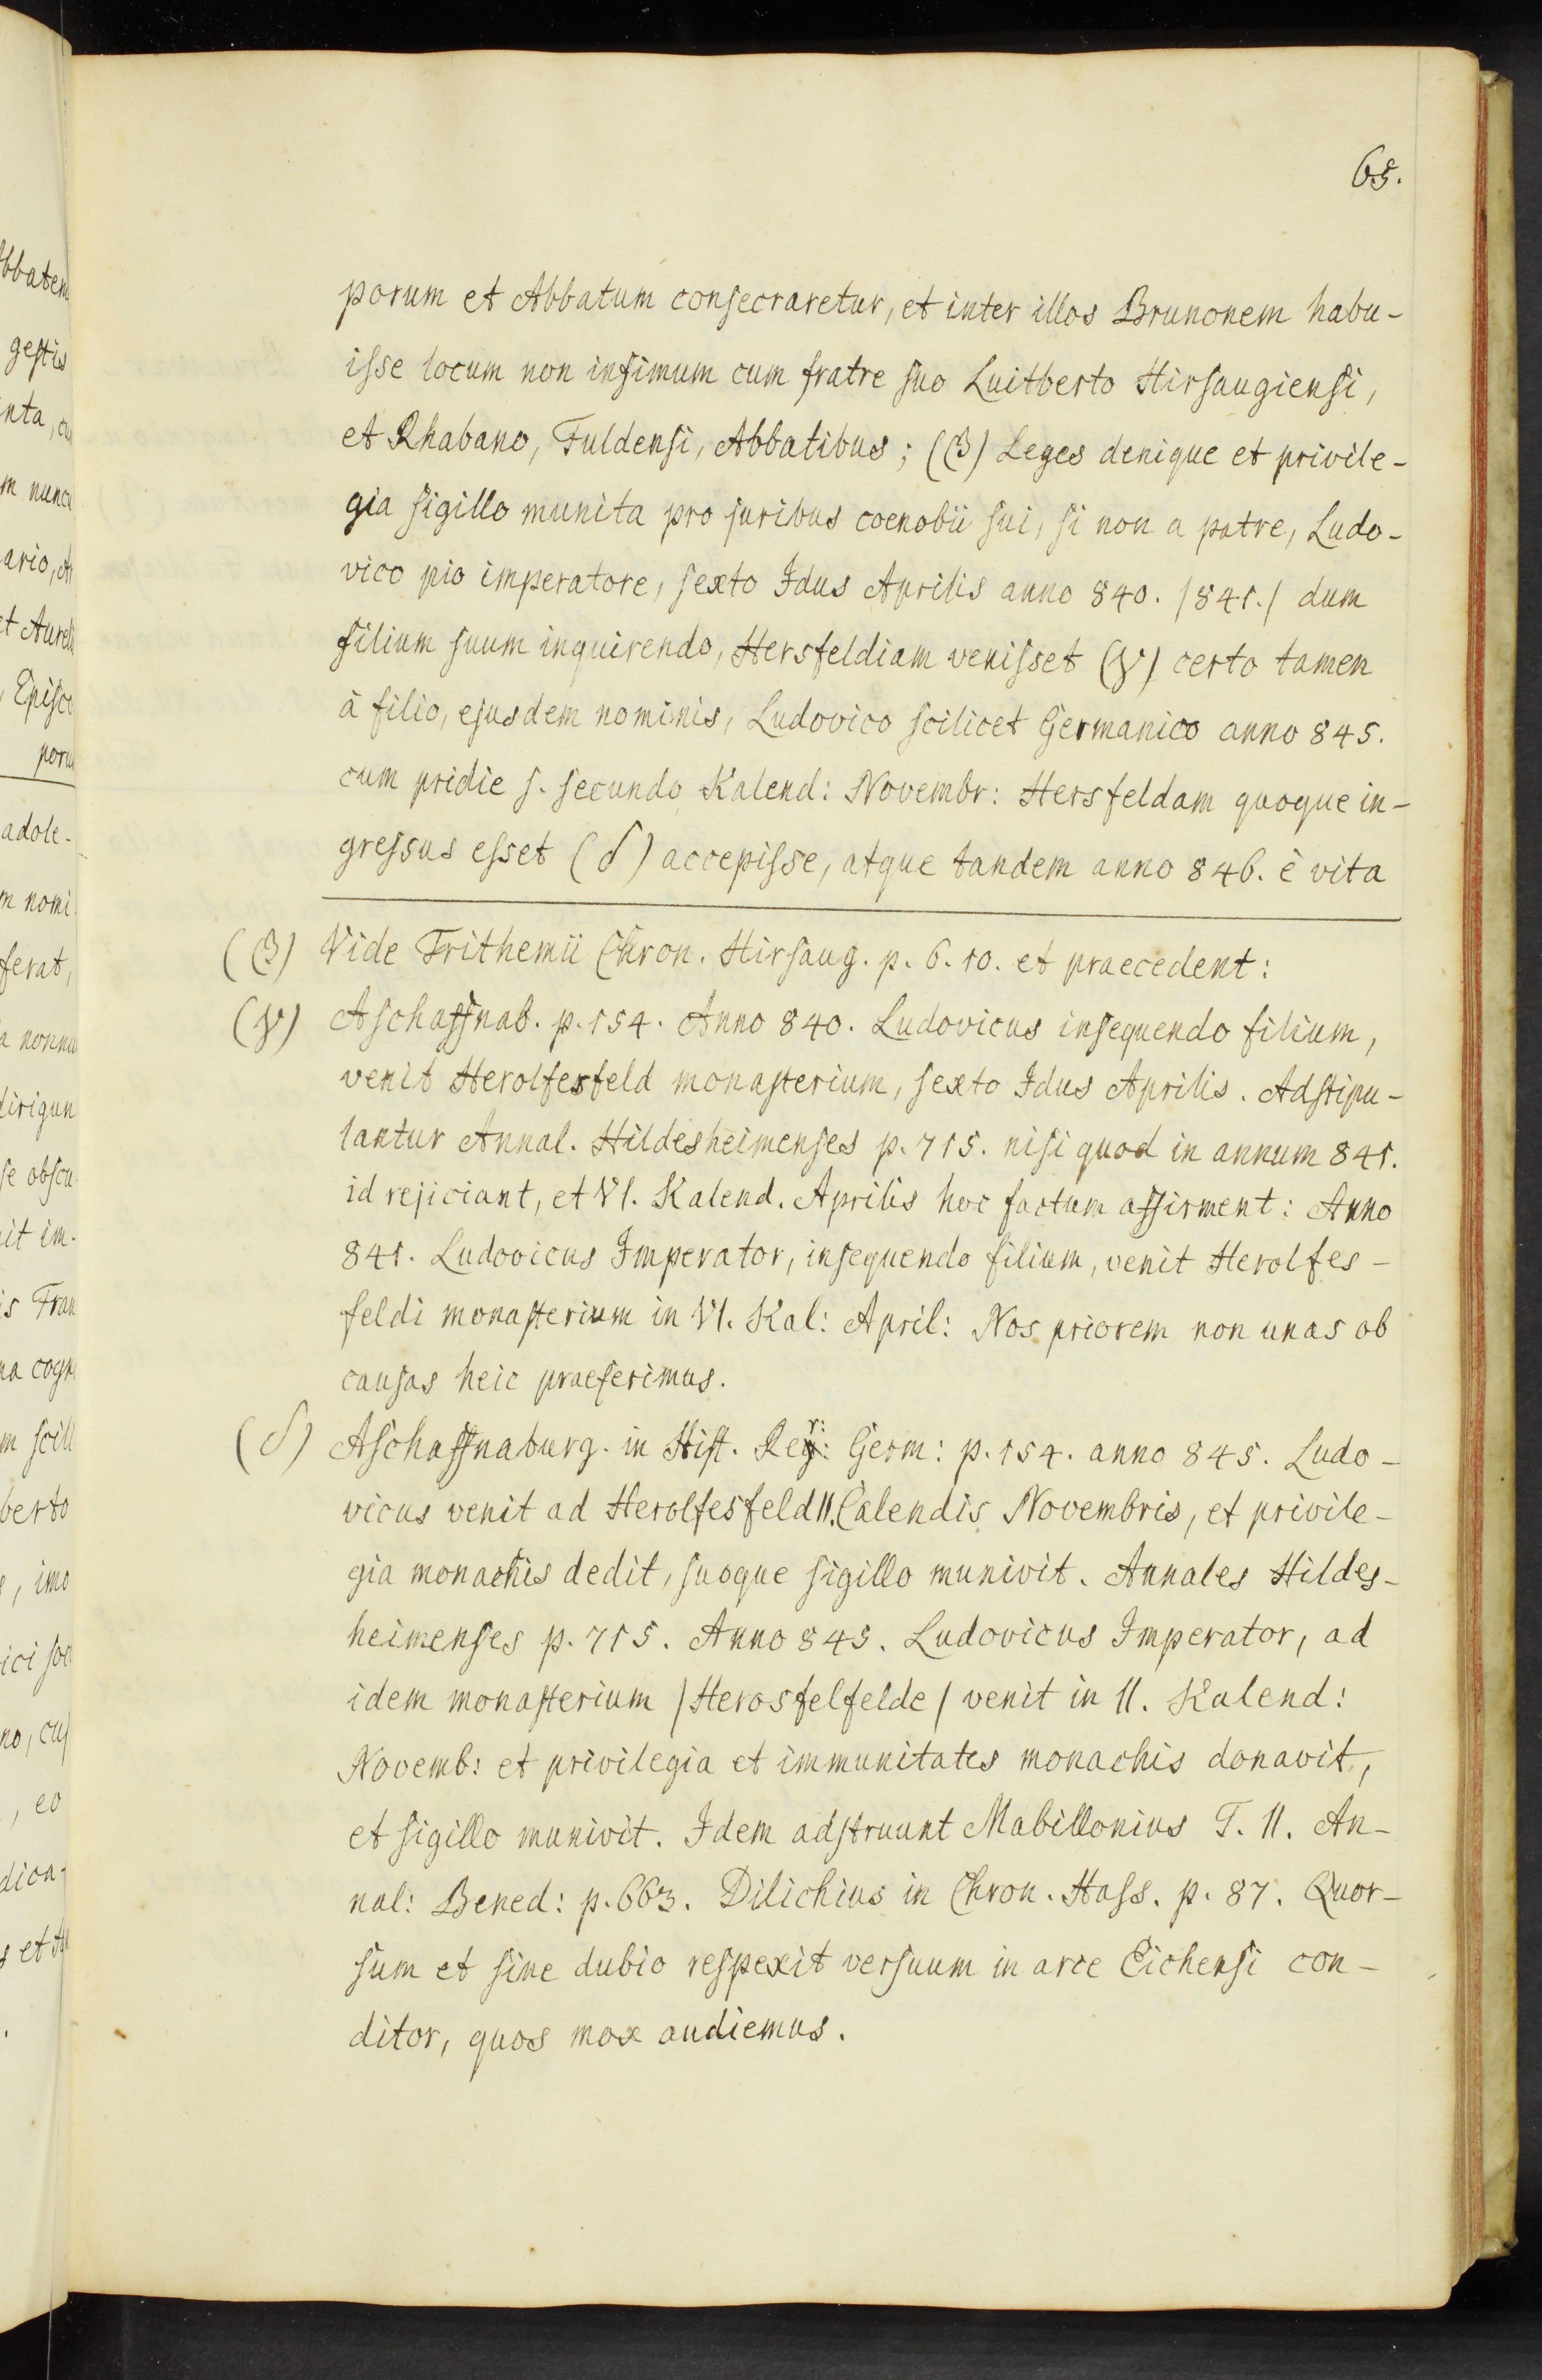 65.
porum et Abbatum consecraretur, et inter illos Brunonem habu-
isse locum non infimum cum fratre suo Luitberto Hirsaugiensi,
et Rhabano, Fuldensi, Abbatibus; (β) Leges denique et privile-
gia sigillo munita pro juribus coenobii sui, si non a patre, Ludo-
vico pio imperatore, sexto Idus Aprilis anno 840. /841./ dum
filium suum inquirendo, Hersfeldiam venisset (γ) certo tamen
à filio, ejusdem nominis, Ludovico scilicet Germanico anno 845.
cum pridie s. secundo Kalend: Novembr: Hersfeldam quoque in-
gressus esset (δ) accepisse, atque tandem anno 846. è vita
(β) Vide Trithemii Chron. Hirsaug. p. 6. 10. et praecedent:
(γ) Aschaffnab. p. 154. Anno 840. Ludovicus insequendo filium,
venit Herolfesfeld monasterium, sexto Idus Aprilis. Adstipu-
lantur Annal. Hildesheimenses p. 715. nisi quod in annum 841.
id rejiciant, et VI. Kalend. Aprilis hoc factum affirment: Anno
841. Ludovicus Imperator, insequendo filium, venit Herolfes-
feldi monasterium in VI. Kal: April: Nos priorem non unas ob
causas heic praeferimus.
(δ) Aschaffnaburg. in Hist. Rer: Germ: p. 154. anno 845. Ludo-
vicus venit ad Herolfesfeld II. Calendis Novembris, et privile-
gia monachis dedit, suoque sigillo munivit. Annales Hildes-
heimenses p. 715. Anno 845. Ludovicus Imperator, ad
idem monasterium /Herosfelfelde/ venit in II. Kalend:
Novemb: et privilegia et immunitates monachis donavit,
et sigillo munivit. Idem adstruunt Mabillonius T. II. An-
nal: Bened: p. 663. Dilichius in Chron. Hass. p. 87. Quor-
sum et sine dubio respexit versuum in arce Eichensi con-
ditor, quos mox audiemus.